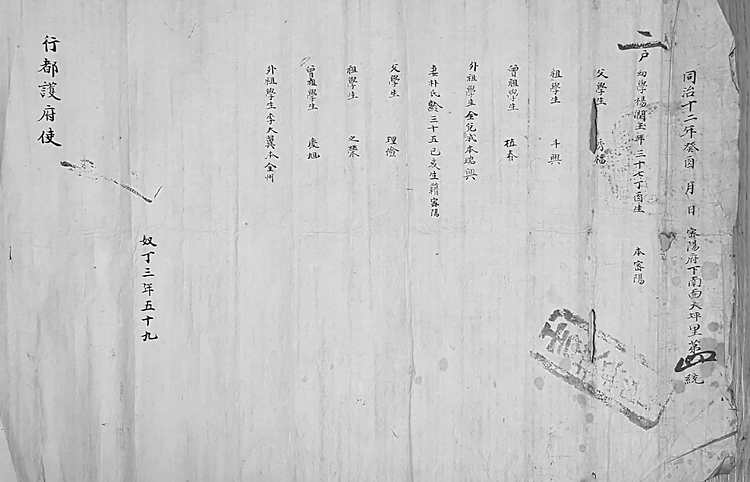 同治十二年癸酉 月 日 密陽府下南面大坪里第四統
二戶 幼學楊潤玉年三十七丁酉生 本密陽
父學生
祖學生 斗興
曾祖學生 植春
外祖學生金 本瑞興
妻朴氏齡三十五己亥生籍密陽
父學生 理儉
祖學生 之
曾祖學生 慶
外祖學生李天翼本全州
奴丁三年五十九
行都護府使